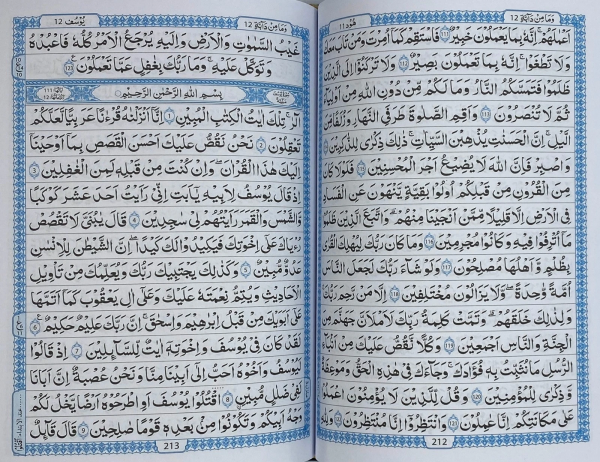 وَمَا مِنْ دَآبَّةٍ 12
هُوْد 11
اَعْمَالَهُمْ ؕ اِنَّهٗ بِمَا يَعْمَلُوْنَ خَبِيْرٌ ۝۱۱۱ فَاسْتَقِمْ كَمَاۤ اُمِرْتَ وَمَنْ تَابَ مَعَكَ
وَلَا تَطْغَوْا ؕ اِنَّهٗ بِمَا تَعْمَلُوْنَ بَصِيْرٌ ۝۱۱۲ وَلَا تَرْكَنُوْۤا اِلَى الَّذِيْنَ
ظَلَمُوْا فَتَمَسَّكُمُ النَّارُ ۙ وَمَا لَكُمْ مِّنْ دُوْنِ اللّٰهِ مِنْ اَوْلِيَآءَ
ثُمَّ لَا تُنْصَرُوْنَ ۝۱۱۳ وَاَقِمِ الصَّلٰوةَ طَرَفَيِ النَّهَارِ وَزُلَفًا مِّنَ
الَّيْلِ ؕ اِنَّ الْحَسَنٰتِ يُذْهِبْنَ السَّيِّاٰتِ ؕ ذٰلِكَ ذِكْرٰى لِلذّٰكِرِيْنَ ۝۱۱۴
وَاصْبِرْ فَاِنَّ اللّٰهَ لَا يُضِيْعُ اَجْرَ الْمُحْسِنِيْنَ ۝۱۱۵ فَلَوْلَا كَانَ
مِنَ الْقُرُوْنِ مِنْ قَبْلِكُمْ اُولُوْا بَقِيَّةٍ يَّنْهَوْنَ عَنِ الْفَسَادِ
فِى الْاَرْضِ اِلَّا قَلِيْلًا مِّمَّنْ اَنْجَيْنَا مِنْهُمْ ۚ وَاتَّبَعَ الَّذِيْنَ ظَلَمُوْا
مَاۤ اُتْرِفُوْا فِيْهِ وَكَانُوْا مُجْرِمِيْنَ ۝۱۱۶ وَمَا كَانَ رَبُّكَ لِيُهْلِكَ الْقُرٰى
بِظُلْمٍ وَّاَهْلُهَا مُصْلِحُوْنَ ۝۱۱۷ وَلَوْ شَآءَ رَبُّكَ لَجَعَلَ النَّاسَ
اُمَّةً وَّاحِدَةً وَّلَا يَزَالُوْنَ مُخْتَلِفِيْنَ ۝۱۱۸ اِلَّا مَنْ رَّحِمَ رَبُّكَ ؕ
وَلِذٰلِكَ خَلَقَهُمْ ؕ وَتَمَّتْ كَلِمَةُ رَبِّكَ لَاَمْلَئَنَّ جَهَنَّمَ مِنَ
الْجِنَّةِ وَالنَّاسِ اَجْمَعِيْنَ ۝۱۱۹ وَكُلًّا نَّقُصُّ عَلَيْكَ مِنْ اَنْۢبَآءِ
الرُّسُلِ مَا نُثَبِّتُ بِهٖ فُؤَادَكَ ۚ وَجَآءَكَ فِىْ هٰذِهِ الْحَقُّ وَمَوْعِظَةٌ
وَّذِكْرٰى لِلْمُؤْمِنِيْنَ ۝۱۲۰ وَقُلْ لِّلَّذِيْنَ لَا يُؤْمِنُوْنَ اعْمَلُوْا
عَلٰى مَكَانَتِكُمْ ؕ اِنَّا عٰمِلُوْنَ ۝۱۲۱ وَانْتَظِرُوْا ۚ اِنَّا مُنْتَظِرُوْنَ ۝۱۲۲ وَلِلّٰهِ
212
وَمَا مِنْ دَآبَّةٍ 12
يُوْسُف 12
غَيْبُ السَّمٰوٰتِ وَالْاَرْضِ وَاِلَيْهِ يُرْجَعُ الْاَمْرُ كُلُّهٗ فَاعْبُدْهُ
وَتَوَكَّلْ عَلَيْهِ ؕ وَمَا رَبُّكَ بِغَافِلٍ عَمَّا تَعْمَلُوْنَ ۝۱۲۳
بِسْمِ اللّٰهِ الرَّحْمٰنِ الرَّحِيْمِ
الٓرٰ ۚ تِلْكَ اٰيٰتُ الْكِتٰبِ الْمُبِيْنِ ۝۱ اِنَّاۤ اَنْزَلْنٰهُ قُرْءٰنًا عَرَبِيًّا لَّعَلَّكُمْ
تَعْقِلُوْنَ ۝۲ نَحْنُ نَقُصُّ عَلَيْكَ اَحْسَنَ الْقَصَصِ بِمَاۤ اَوْحَيْنَاۤ
اِلَيْكَ هٰذَا الْقُرْاٰنَ ۖ وَاِنْ كُنْتَ مِنْ قَبْلِهٖ لَمِنَ الْغٰفِلِيْنَ ۝۳
اِذْ قَالَ يُوْسُفُ لِاَبِيْهِ يٰۤاَبَتِ اِنِّىْ رَاَيْتُ اَحَدَ عَشَرَ كَوْكَبًا
وَّالشَّمْسَ وَالْقَمَرَ رَاَيْتُهُمْ لِىْ سٰجِدِيْنَ ۝۴ قَالَ يٰبُنَىَّ لَا تَقْصُصْ
رُءْيَاكَ عَلٰۤى اِخْوَتِكَ فَيَكِيْدُوْا لَكَ كَيْدًا ؕ اِنَّ الشَّيْطٰنَ لِلْاِنْسَانِ
عَدُوٌّ مُّبِيْنٌ ۝۵ وَكَذٰلِكَ يَجْتَبِيْكَ رَبُّكَ وَيُعَلِّمُكَ مِنْ تَاْوِيْلِ
الْاَحَادِيْثِ وَيُتِمُّ نِعْمَتَهٗ عَلَيْكَ وَعَلٰۤى اٰلِ يَعْقُوْبَ كَمَاۤ اَتَمَّهَا
عَلٰۤى اَبَوَيْكَ مِنْ قَبْلُ اِبْرٰهِيْمَ وَاِسْحٰقَ ؕ اِنَّ رَبَّكَ عَلِيْمٌ حَكِيْمٌ ۝۶
لَقَدْ كَانَ فِىْ يُوْسُفَ وَاِخْوَتِهٖۤ اٰيٰتٌ لِّلسَّآئِلِيْنَ ۝۷ اِذْ قَالُوْا
لَيُوْسُفُ وَاَخُوْهُ اَحَبُّ اِلٰۤى اَبِيْنَا مِنَّا وَنَحْنُ عُصْبَةٌ ؕ اِنَّ اَبَانَا
لَفِىْ ضَلٰلٍ مُّبِيْنٍ ۝۸ اقْتُلُوْا يُوْسُفَ اَوِ اطْرَحُوْهُ اَرْضًا يَّخْلُ لَكُمْ
وَجْهُ اَبِيْكُمْ وَتَكُوْنُوْا مِنْۢ بَعْدِهٖ قَوْمًا صٰلِحِيْنَ ۝۹ قَالَ قَآئِلٌ
213